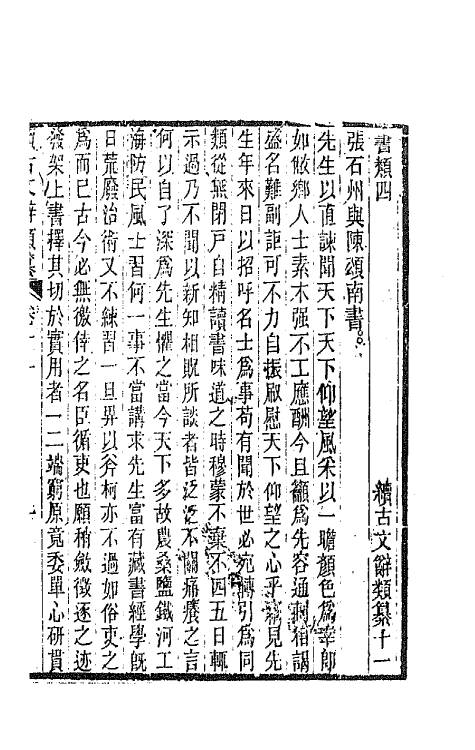 續古文辭類纂十一
書類四
張石州與陳頌南書
先生以直諫聞天下天下仰望風采以一瞻顏色爲幸郎
如攸鄉人士素木强不工應酬今且籲爲先容通刺者謁
盛名難副詎可不力自振厰慰天下仰望之心乎竊見先
生年來日以招呼名士爲事苟有聞於世必宛轉引爲同
類從無閉戸自精讀書味道之時穆蒙不棄不四五日輒
示過乃不聞以新知相貺所談者皆泛泛不關痛癢之言
何以自了深爲先生懼之當今天下多故農桑鹽鐵河工
海防民風士習何一事不當講求先生富有藏書經學既
日荒廢治術又不練習一旦畀以斧柯亦不過如俗吏之
爲而已古今必無徼倖之名臣循吏也願稍斂徵逐之迹
發架上書擇其切於實用者一二端窮原竟委單心研貫